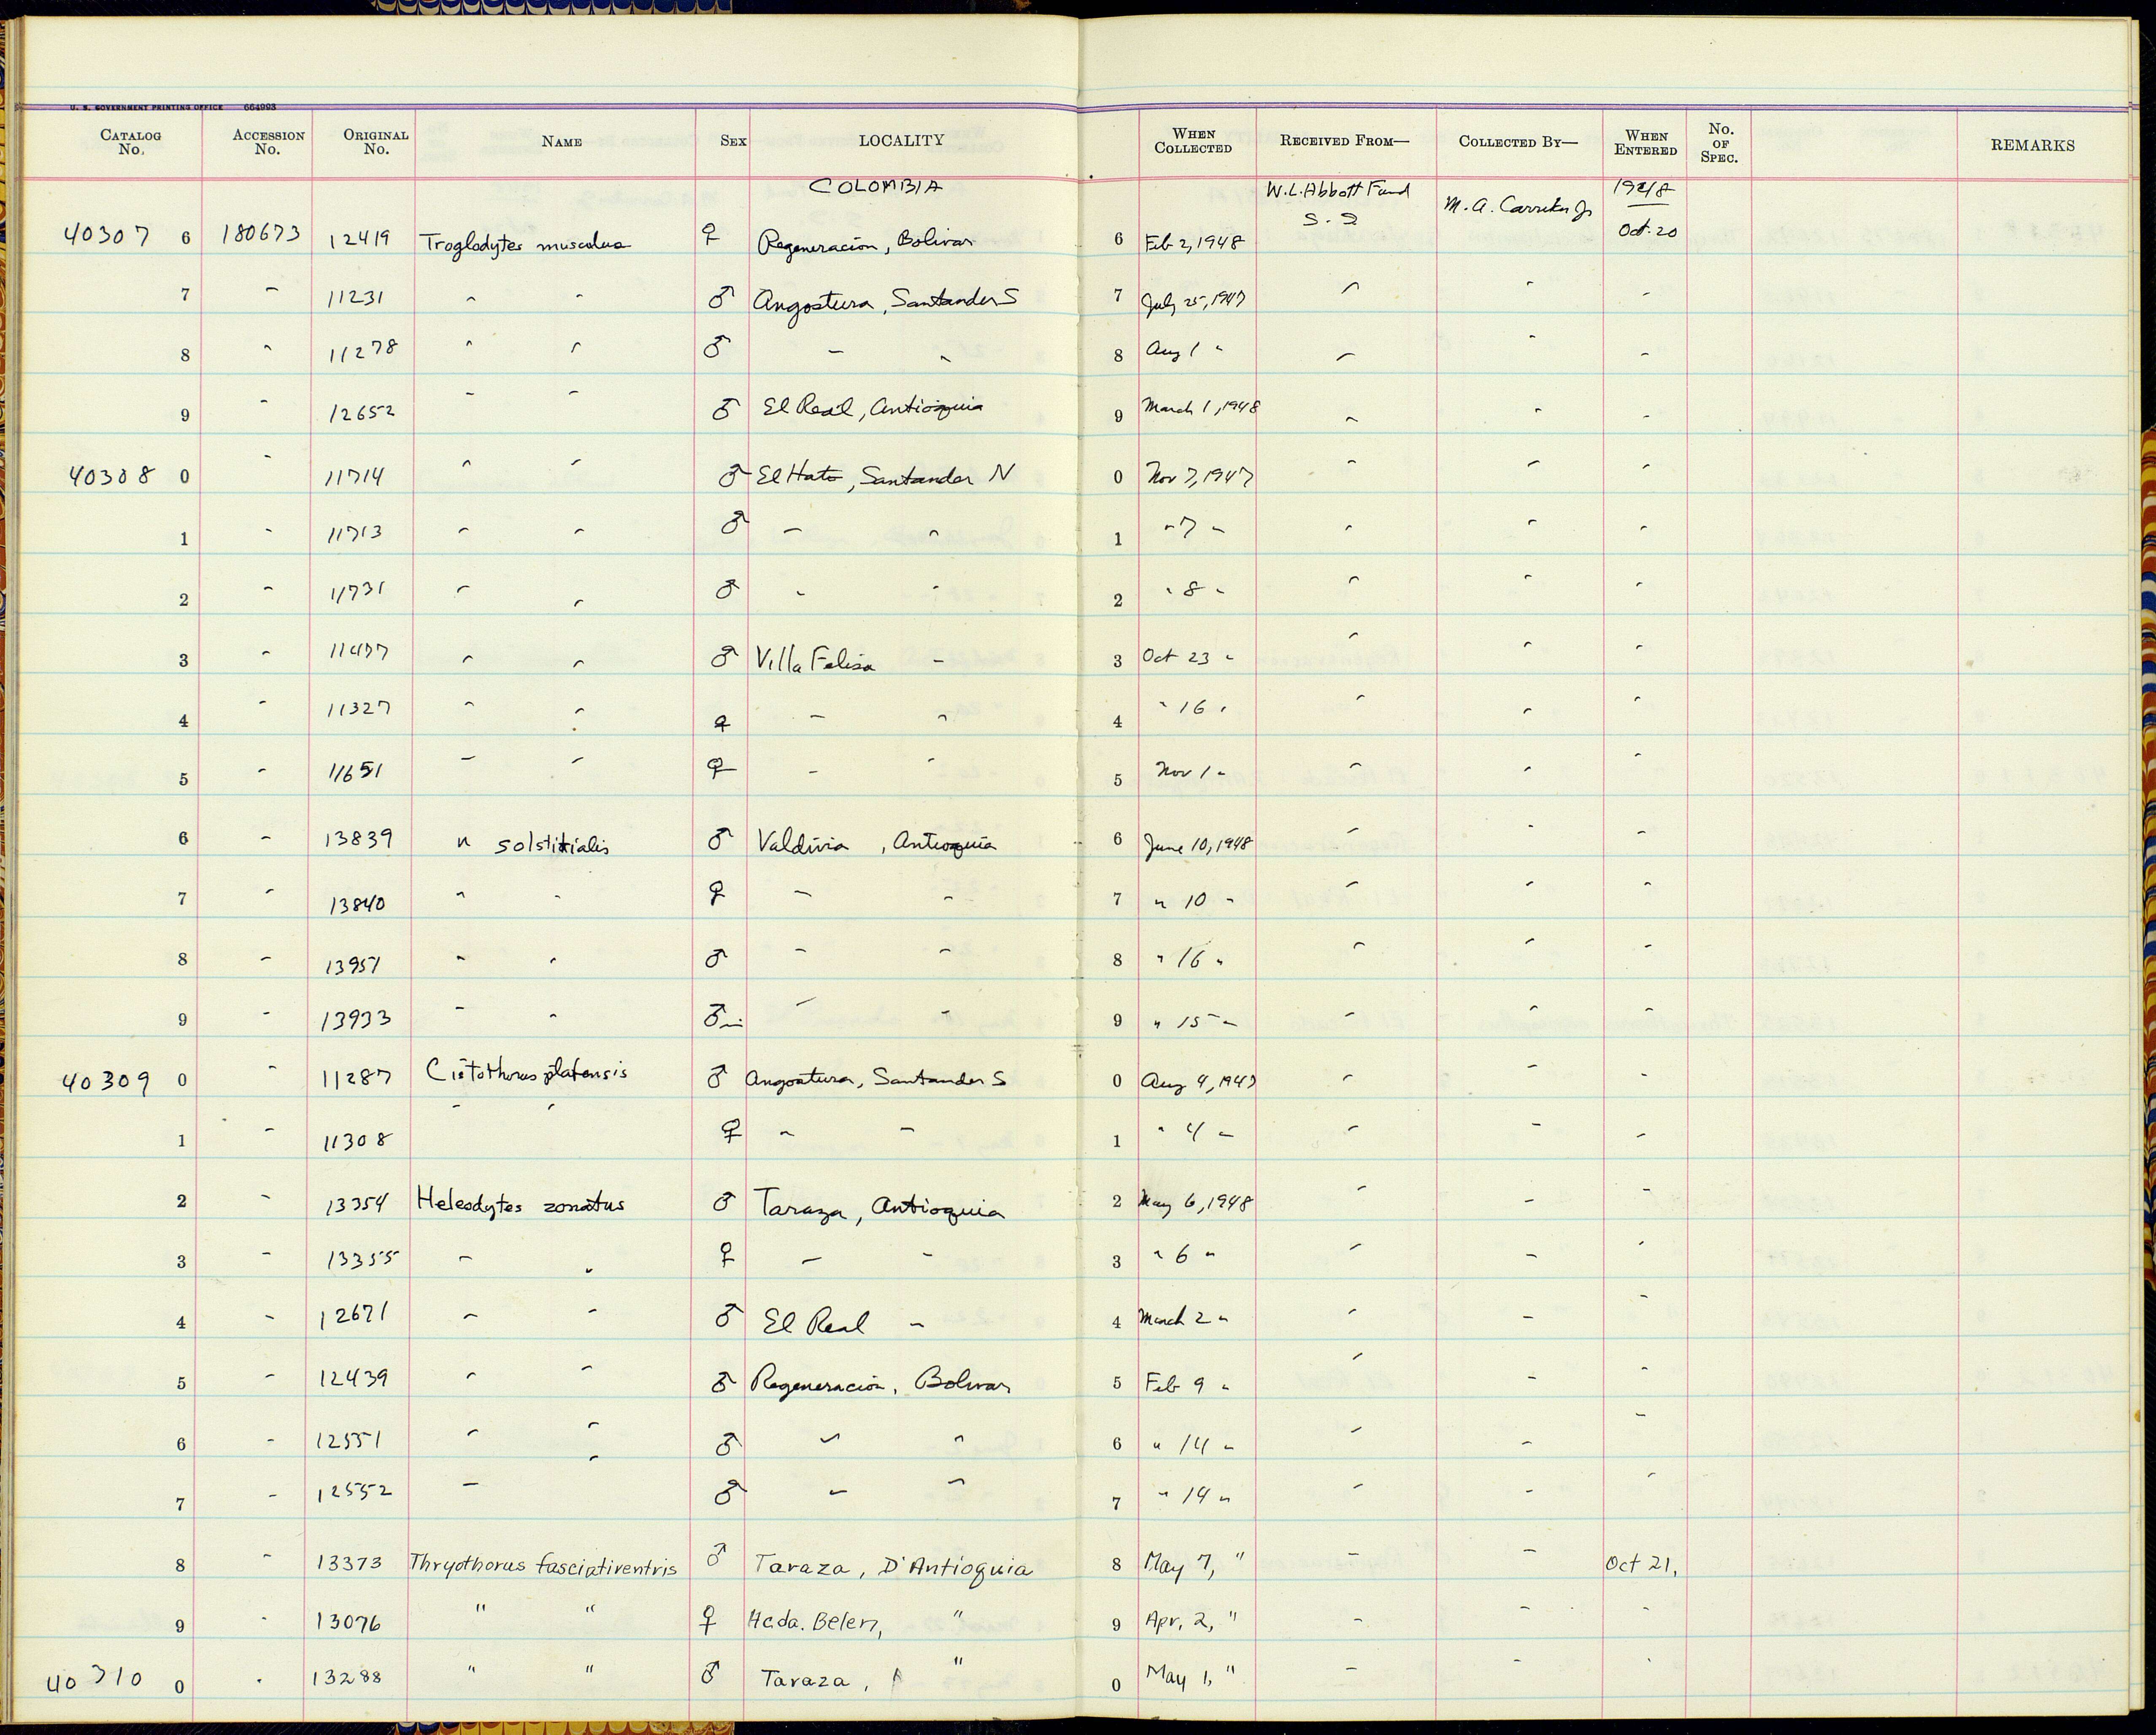 U. S. GOVERNMENT PRINTING OFFICE 664993
CATALOG No. ACCESSION No. ORIGINAL No. NAME SEX LOCALITY WHEN COLLECTED RECEIVED FROM— COLLECTED BY— WHEN ENTERED No. OF SPEC. REMARKS
COLOMBIA W. L. Abbott Fund S. I. M. A. Carriker Jr 1948
40307 6 180673 12419 Troglodytes musculus ♀ Regeneracion, Bolivar 6 Feb 2, 1948 Oct. 20
7 " 11231 " " ♂ Angostura, Santander S 7 July 25, 1947 " " "
8 " 11278 " " ♂ " " 8 Aug 1 " " " "
9 " 12652 " " ♂ El Real, Antioquia 9 March 1, 1948 " " "
40308 0 " 11714 " " ♂ El Hato, Santander N 0 Nov 7, 1947 " " "
1 " 11713 " " ♂ " " 1 " 7 " " " "
2 " 11731 " " ♂ " " 2 " 8 " " " "
3 " 11477 " " ♂ Villa Felisa " 3 Oct 23 " " " "
4 " 11327 " " ♀ " " 4 " 16 " " " "
5 " 11651 " " ♀ " " 5 Nov 1 " " " "
6 " 13839 " solstitialis ♂ Valdivia, Antioquia 6 June 10, 1948 " " "
7 " 13840 " " ♀ " " 7 " 10 " " " "
8 " 13951 " " ♂ " " 8 " 16 " " " "
9 " 13933 " " ♂ im " " 9 " 15 " " " "
40309 0 " 11287 Cistothorus platensis ♂ Angostura, Santander S 0 Aug 4, 1947 " " "
1 " 11308 " " ♀ " " 1 " 4 " " " "
2 " 13354 Heleodytes zonatus ♂ Taraza, Antioquia 2 May 6, 1948 " " "
3 " 13355 " " ♀ " " 3 " 6 " " " "
4 " 12671 " " ♂ El Real " 4 March 2 " " " "
5 " 12439 " " ♂ Regeneracion, Bolivar 5 Feb 9 " " " "
6 " 12551 " " ♂ " " 6 " 14 " " " "
7 " 12552 " " ♂ " " 7 " 14 " " " "
8 " 13373 Thryothorus fasciativentris ♂ Taraza, D'Antioquia 8 May 7, " " " Oct 21,
9 " 13076 " " ♀ Hcda. Belen, " 9 Apr. 2, " " " "
40310 0 " 13288 " " ♂ Taraza, " 0 May 1, " " " "